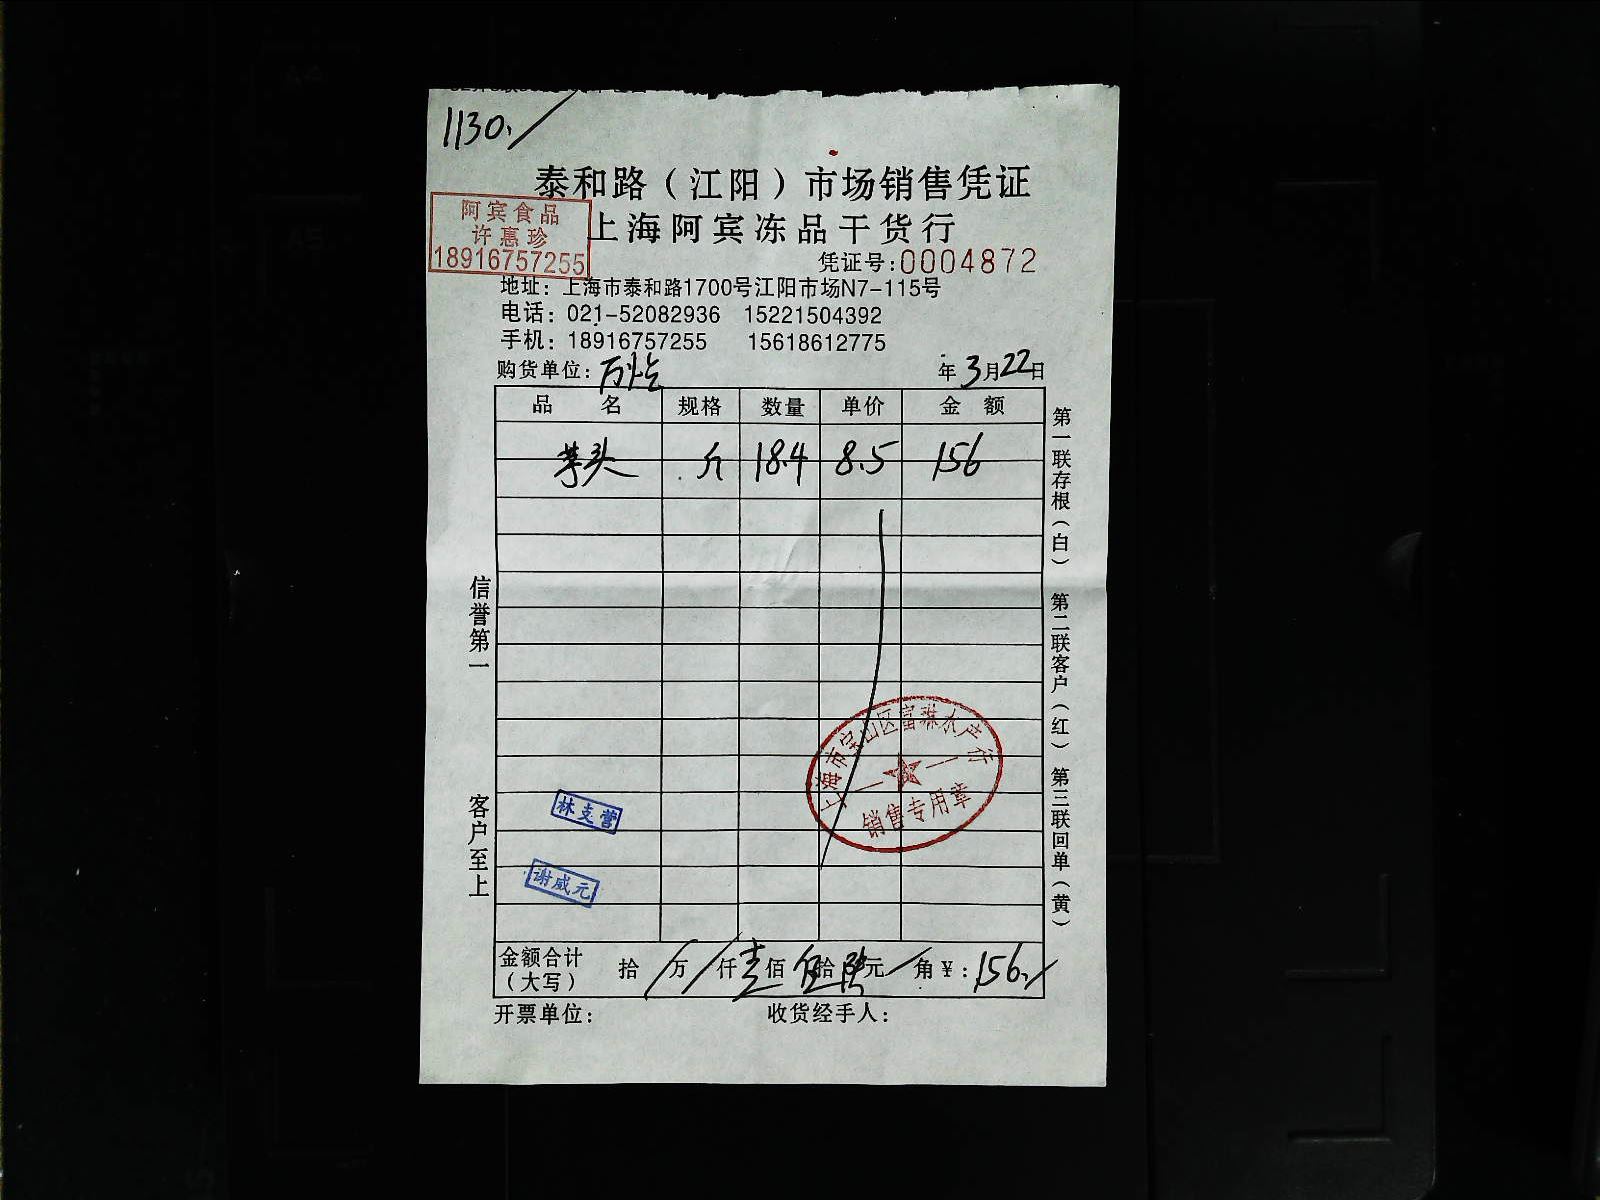 1130./
泰和路（江阳）市场销售凭证
阿宾食品
许惠珍
18916757255
上海阿宾冻品干货行
凭证号:0004872
地址：上海市泰和路1700号江阳市场N7-115号
电话：021-52082936 15221504392
手机：18916757255 15618612775
购货单位: 年3月22日
品名 规格 数量 单价 金额
芋头 斤 18.4 8.5 156
第一联存根（白） 第二联客户（红） 第三联回单（黄）
信誉第一
客户至上
上海市宝山区富琳水产行
销售专用章
林支营
谢威元
金额合计（大写） 拾/万/仟壹佰伍拾陆元/角￥:156./
开票单位: 收货经手人: